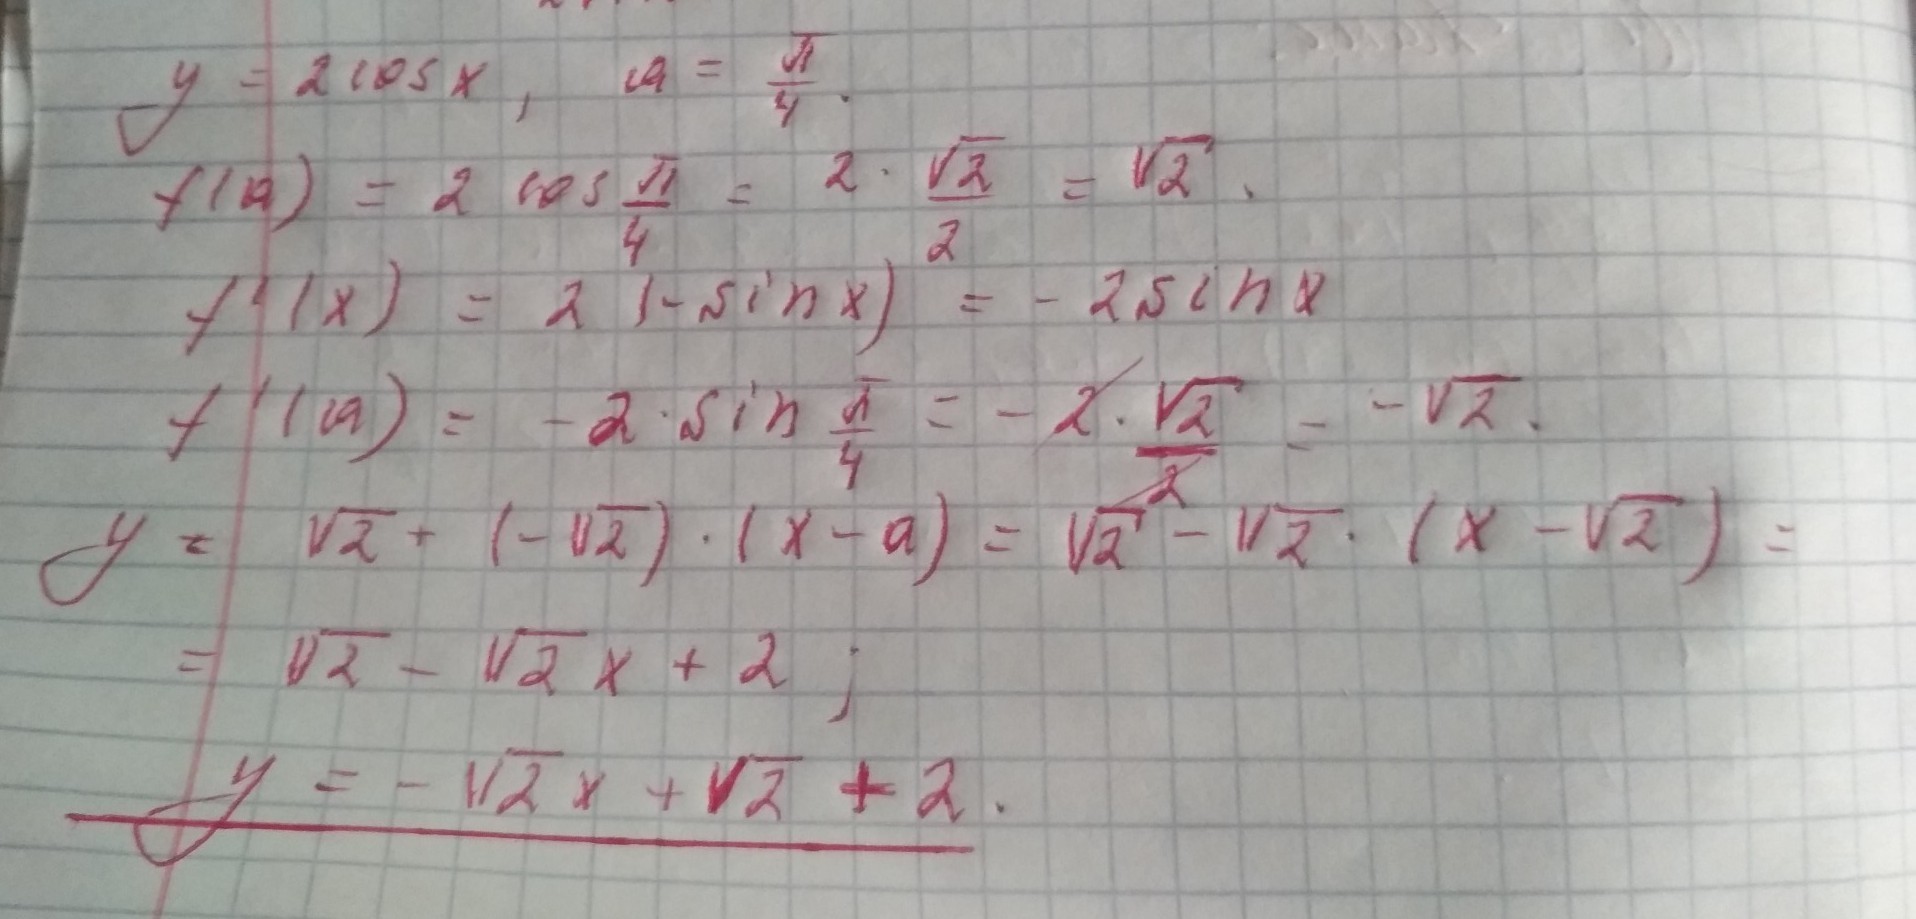 y = 2 cos x, a = π/4.
f(a) = 2 cos π/4 = 2 · √2/2 = √2.
f'(x) = 2 (-sin x) = - 2 sin x
f'(a) = -2 · sin π/4 = - 2 · √2/2 = -√2.
y = √2 + (-√2) · (x - a) = √2 - √2 · (x - √2) =
= √2 - √2 x + 2 ;
y = - √2 x + √2 + 2.